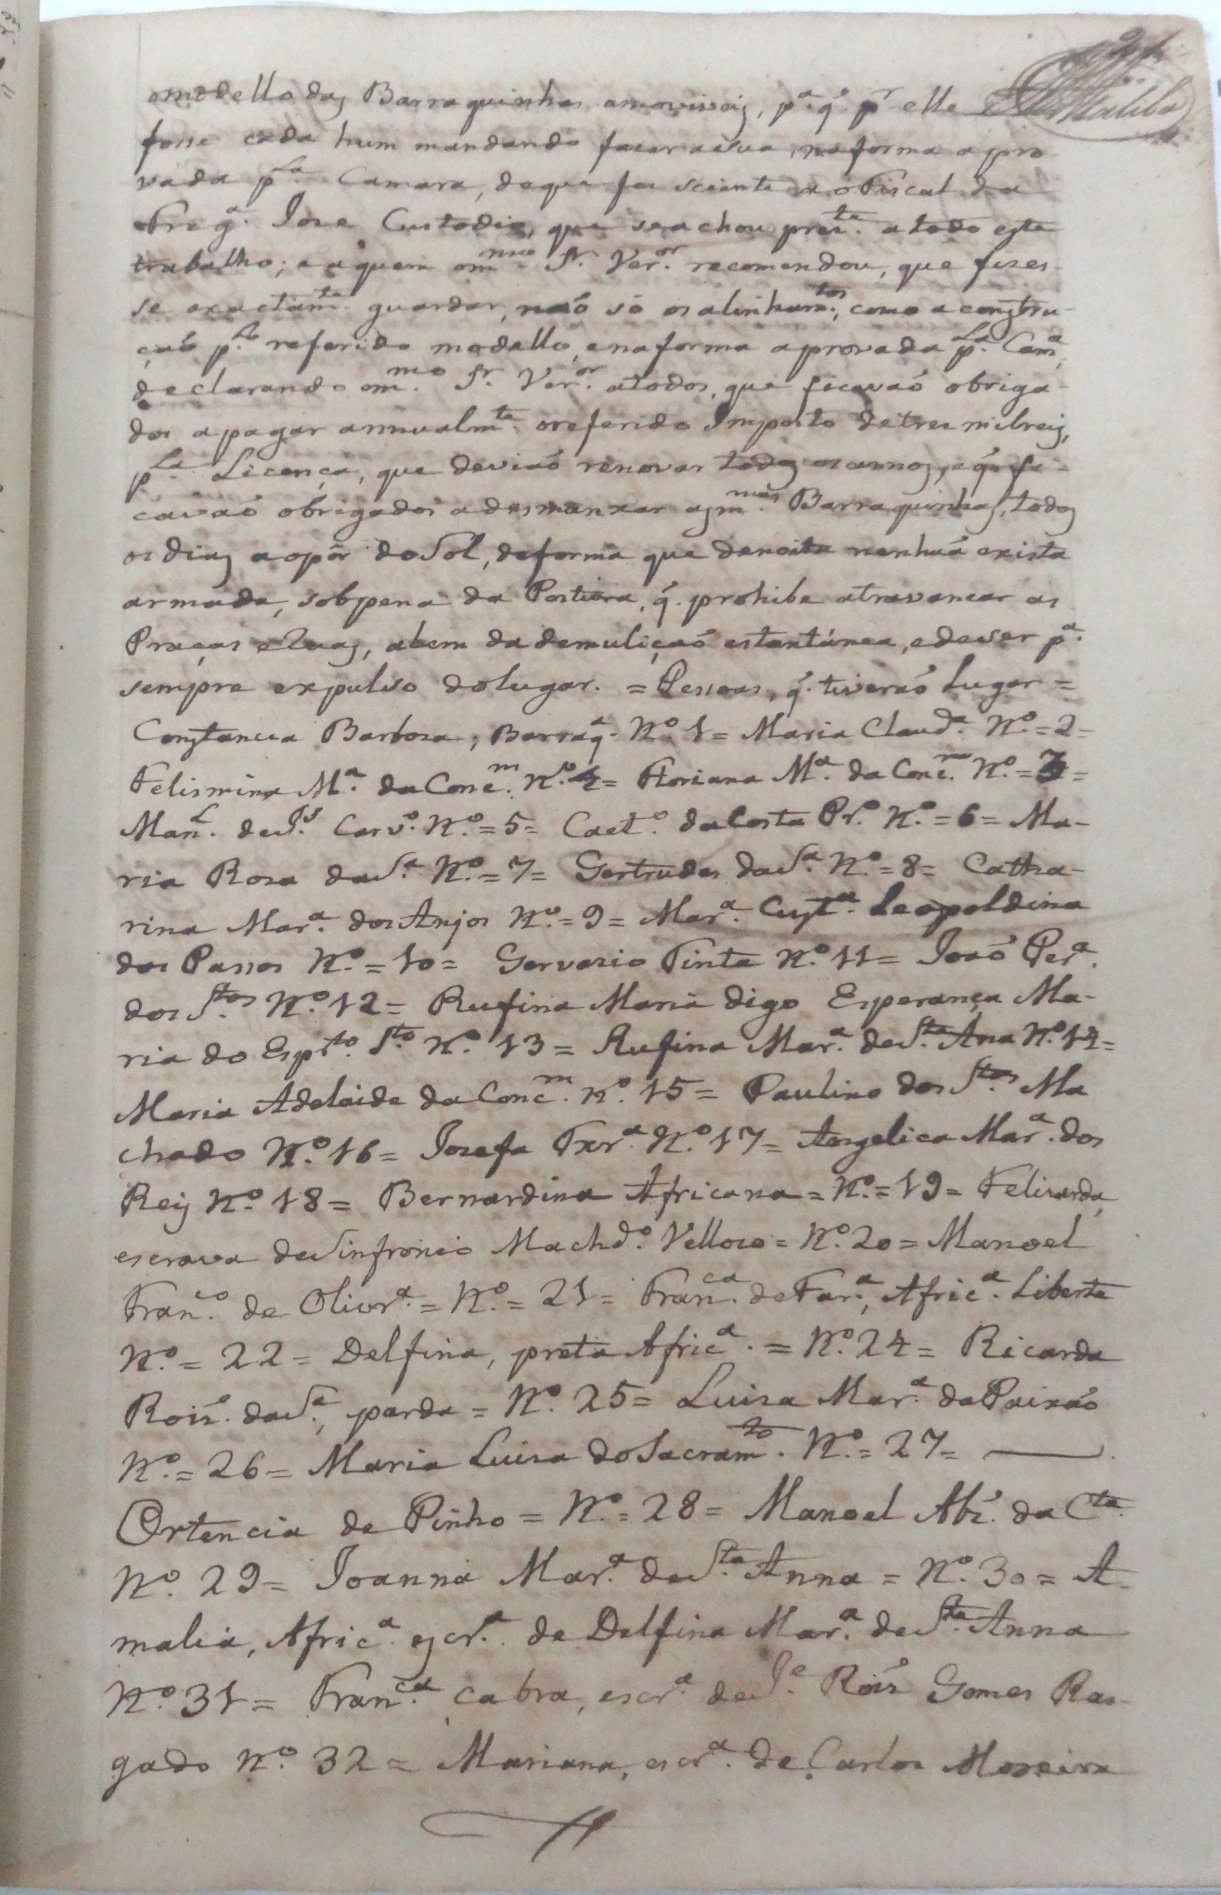 o modello das Barraquinhas amoviveis, pª q̃. pr elle
fosse cada hum mandando fazer a sua, na forma apro
vada pla. Camara, do que foi sciente o Fiscal da
Fregª. Jose Custodio, que se achou preste. a todo este
trabalho; e a quem o mmo. Sr. Veror. recomendou, que fizes-
se exactamte. guardar, naõ só os alinhamtos., como a construc-
çaõ plo. referido modello, e na forma aprovada pla. Camª,
declarando o mmo. Sr. Veror. a todos, que ficavaõ obriga-
dos a pagar annualmte. o referido Imposto de tres mil reis,
pla. Licença, que deviaõ renovar todos os annos, e q̃ fi-
cavaõ obrigados a desmanxar as mmas. Barraquinhas, todos
os dias ao pôr do Sol, de forma que de noite nenhuã exista
armada, sob pena da Postura, q̃. prohibe atravancar as
Praças e Ruas, alem da demuliçaõ estantánea, e de ser pª.
sempre expulso do lugar. = Pessoas, q̃. tiveraõ Lugar =
Constancia Barboza, Barraqª. Nº. 1 = Maria Claudª. Nº. = 2 =
Felismina Mª. da Concm. Nº. 4 = Floriana Mª. da Concm. Nº. = 3 =
Manl. de Js. Carvº. Nº. = 5 = Caetº. da Costa Prº. Nº. = 6 = Ma-
ria Roza da Sª. Nº. = 7 = Gertrudes da Sª. Nº. = 8 = Catha-
rina Marª. dos Anjos Nº. = 9 = Marª. Custª. Leopoldina
dos Passos Nº. = 10 = Gervazio Pinto Nº. 11 = Joaõ Perª.
dos Stos. Nº. 12 = Rufina Maria digo Esperança Ma-
ria do Espto. Sto. Nº. 13 = Rufina Marª. de Sta. Ana Nº. 14 =
Maria Adelaide da Concm. Nº. 15 = Paulino dos Stos. Ma
chado Nº. 16 = Josefa Ferrª. Nº. 17 = Angelica Marª. dos
Reis Nº. 18 = Bernardina Africana = Nº. = 19 = Felizarda,
escrava de Sinfronio Machdº. Vellozo = Nº. 20 = Manoel
Franco. de Olivrª. = Nº. = 21 = Franca. de Farª., Africª. Liberta
Nº. = 22 = Delfina, preta Africª. = Nº. 24 = Ricarda
Roiz̃. da Sª., parda = Nº. 25 = Luiza Marª. da Paixaõ
Nº. = 26 = Maria Luiza do Sacramto. Nº. = 27 =
Ortencia de Pinho = Nº. = 28 = Manoel Alz̃. da Cta.
Nº. 29 = Joanna Marª. de Sta. Anna = Nº. 30 = A-
malia, Africª. escrª. de Delfina Marª. de Sta. Anna
Nº. 31 = Franca. cabra, escrª. de Je. Roiz̃ Gomes Ras-
gado Nº. 32 = Mariana, escrª. de Carlos Moreira